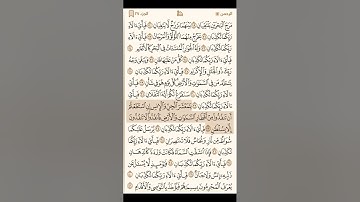 الرحمن الجزء ٢٧
مَرَجَ ٱلْبَحْرَيْنِ يَلْتَقِيَانِ ١٩ بَيْنَهُمَا بَرْزَخٌ لَّا يَبْغِيَانِ ٢٠ فَبِأَيِّ ءَالَآءِ
رَبِّكُمَا تُكَذِّبَانِ ٢١ يَخْرُجُ مِنْهُمَا ٱللُّؤْلُؤُ وَٱلْمَرْجَانُ ٢٢ فَبِأَيِّ ءَالَآءِ
رَبِّكُمَا تُكَذِّبَانِ ٢٣ وَلَهُ ٱلْجَوَارِ ٱلْمُنشَـَٔاتُ فِي ٱلْبَحْرِ كَٱلْأَعْلَٰمِ ٢٤
فَبِأَيِّ ءَالَآءِ رَبِّكُمَا تُكَذِّبَانِ ٢٥ كُلُّ مَنْ عَلَيْهَا فَانٍ ٢٦ وَيَبْقَىٰ وَجْهُ
رَبِّكَ ذُو ٱلْجَلَٰلِ وَٱلْإِكْرَامِ ٢٧ فَبِأَيِّ ءَالَآءِ رَبِّكُمَا تُكَذِّبَانِ ٢٨
يَسْـَٔلُهُۥ مَن فِي ٱلسَّمَٰوَٰتِ وَٱلْأَرْضِ كُلَّ يَوْمٍ هُوَ فِي شَأْنٍ ٢٩
فَبِأَيِّ ءَالَآءِ رَبِّكُمَا تُكَذِّبَانِ ٣٠ سَنَفْرُغُ لَكُمْ أَيُّهَ ٱلثَّقَلَانِ ٣١
فَبِأَيِّ ءَالَآءِ رَبِّكُمَا تُكَذِّبَانِ ٣٢ يَٰمَعْشَرَ ٱلْجِنِّ وَٱلْإِنسِ إِنِ ٱسْتَطَعْتُمْ
أَن تَنفُذُوا۟ مِنْ أَقْطَارِ ٱلسَّمَٰوَٰتِ وَٱلْأَرْضِ فَٱنفُذُوا۟ لَا تَنفُذُونَ
إِلَّا بِسُلْطَٰنٍ ٣٣ فَبِأَيِّ ءَالَآءِ رَبِّكُمَا تُكَذِّبَانِ ٣٤ يُرْسَلُ عَلَيْكُمَا
شُوَاظٌ مِّن نَّارٍ وَنُحَاسٌ فَلَا تَنتَصِرَانِ ٣٥ فَبِأَيِّ ءَالَآءِ رَبِّكُمَا
تُكَذِّبَانِ ٣٦ فَإِذَا ٱنشَقَّتِ ٱلسَّمَآءُ فَكَانَتْ وَرْدَةً كَٱلدِّهَانِ ٣٧
فَبِأَيِّ ءَالَآءِ رَبِّكُمَا تُكَذِّبَانِ ٣٨ فَيَوْمَئِذٍ لَّا يُسْـَٔلُ عَن
ذَنۢبِهِۦٓ إِنسٌ وَلَا جَآنٌّ ٣٩ فَبِأَيِّ ءَالَآءِ رَبِّكُمَا تُكَذِّبَانِ ٤٠
يُعْرَفُ ٱلْمُجْرِمُونَ بِسِيمَٰهُمْ فَيُؤْخَذُ بِٱلنَّوَٰصِي وَٱلْأَقْدَامِ ٤١